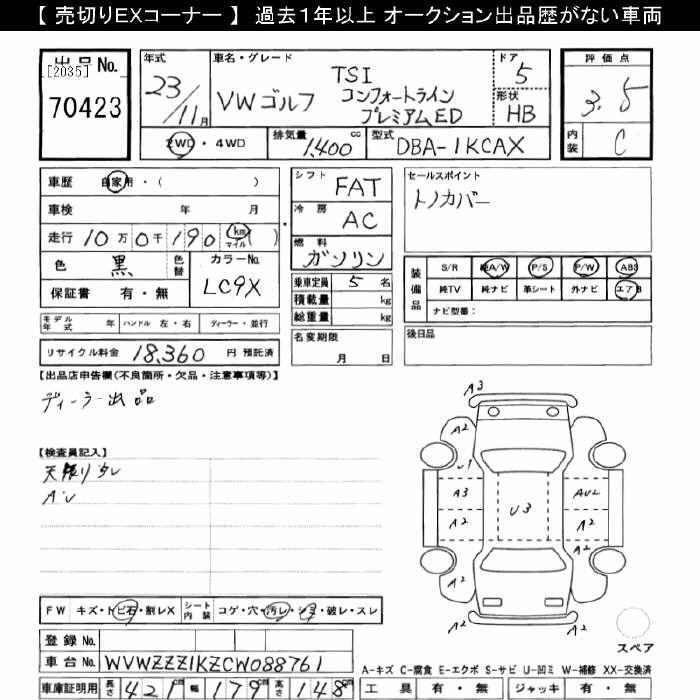 【 売切りEXコーナー 】 過去１年以上 オークション出品歴がない車両
出品 No.
[2035]
70423
年式
23/11月
車名・グレード
VWゴルフ
TSI
コンフォートライン
プレミアムED
ドア
5
形状
HB
評価点
3.5
内装
C
2WD・4WD
排気量
1,400 cc
型式
DBA-1KCAX
車歴 自家用・( )
車検 年 月
走行 10万0千190 km マイル ( )
色 黒 色替
カラーNo.
LC9X
保証書 有・無
シフト FAT
冷房 AC
燃料 ガソリン
乗車定員 5 名
積載量 kg
総重量 kg
セールスポイント
トノカバー
装備品
S/R 純A/W P/S P/W ABS
純TV 純ナビ 革シート 外ナビ エアB
ナビ型番:
モデル年式 年 ハンドル 左・右 ディーラー・並行
名変期限
月 日
後日品
リサイクル料金 18,360 円 預託済
【出品店申告欄(不良箇所・欠品・注意事項等)】
ディーラー出品
【検査員記入】
A3
A2
A2
U1
A3
U3
AU2
A2
A2
A2
A2
FW キズ・トビ石・割レX シート内装 コゲ・穴・汚レ・シミ・破レ・スレ
登録 No.
車台 No. WVWZZZ1KZCW088761
スペア
A-キズ C-腐食 E-エクボ S-サビ U-凹ミ W-補修 XX-交換済
車庫証明用 長さ 421cm 幅 179cm 高さ 148cm
工具 有・無 ジャッキ 有・無